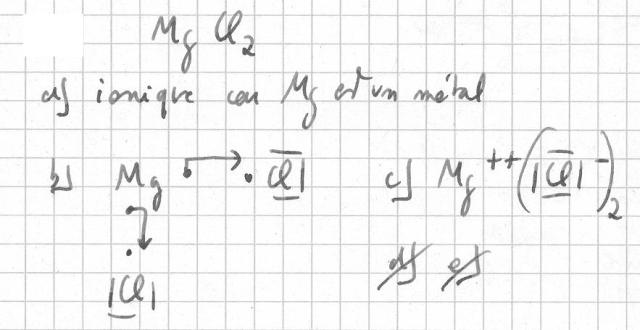 Mg Cl2
a) ionique car Mg est un métal
b) Mg · · Cl c) Mg ++ (|Cl| -)2
|Cl|
d) e)